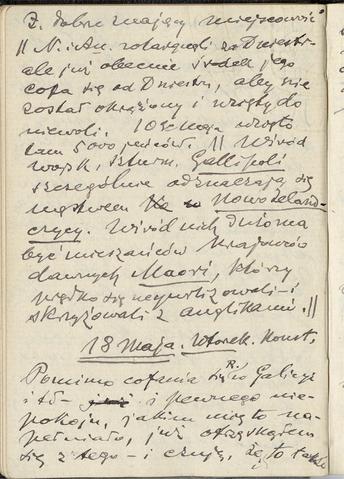 Z. dobrze znający miejscowość
|| N. i An. rotacyjnych za Dniestr.
ale już obecnie środek jego
cofa się od Dniestru, aby nie
został okrążony i wzięty do
niewoli. wzięto
tam 5000 jeńców. || Wśród
wojsk, szturm. Gallipoli
szczególnie odznaczają się
męstwem Nowozeland-
czycy. Wśród nich dużo ma
być mieszańców krajowców
dawnych Maori, którzy
prędko się i
skrzyżowali z anglikami. ||
18 Maja. Wtorek. Konst.
Pomimo cofania się R. w Galicyi
i t d. i pewnego nie-
pokoju, jakim mię to na-
pełniało, już otrząsnąłem
się z tego – i czuję, że to także